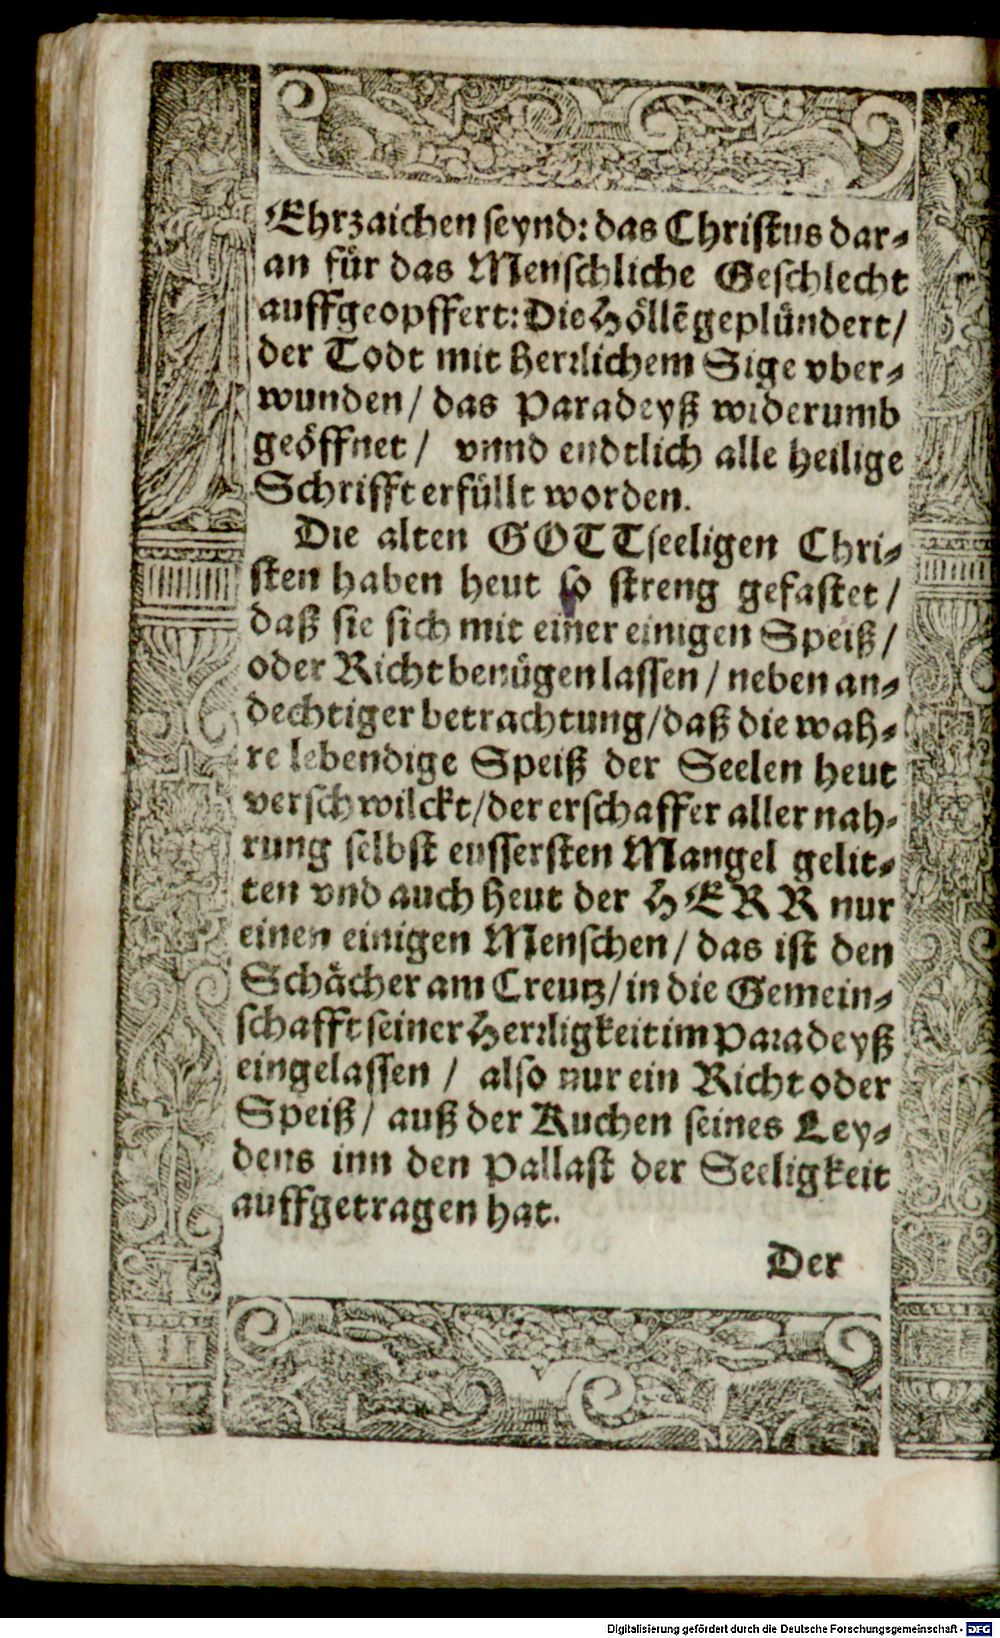 Ehrzaichen seynd: das Christus dar⸗
an für das Menschliche Geschlecht
auffgeopffert: Die Höllē geplündert/
der Todt mit herrlichem Sige vber⸗
wunden/ das Paradeyß widerumb
geöffnet/ vnnd endtlich alle heilige
Schrifft erfüllt worden.
Die alten GOTTseeligen Chri⸗
sten haben heut so streng gefastet/
daß sie sich mit einer einigen Speiß/
oder Richt benügen lassen/ neben an⸗
dechtiger betrachtung/ daß die wah⸗
re lebendige Speiß der Seelen heut
verschwilckt/ der erschaffer aller nah⸗
rung selbst eussersten Mangel gelit⸗
ten vnd auch heut der HERR nur
einen einigen Menschen/ das ist den
Schächer am Creutz/ in die Gemein⸗
schafft seiner Herrligkeit im Paradeyß
eingelassen/ also nur ein Richt oder
Speiß/ auß der Kuchen seines Ley⸗
dens inn den Pallast der Seeligkeit
auffgetragen hat.
Der
Digitalisierung gefördert durch die Deutsche Forschungsgemeinschaft - DFG